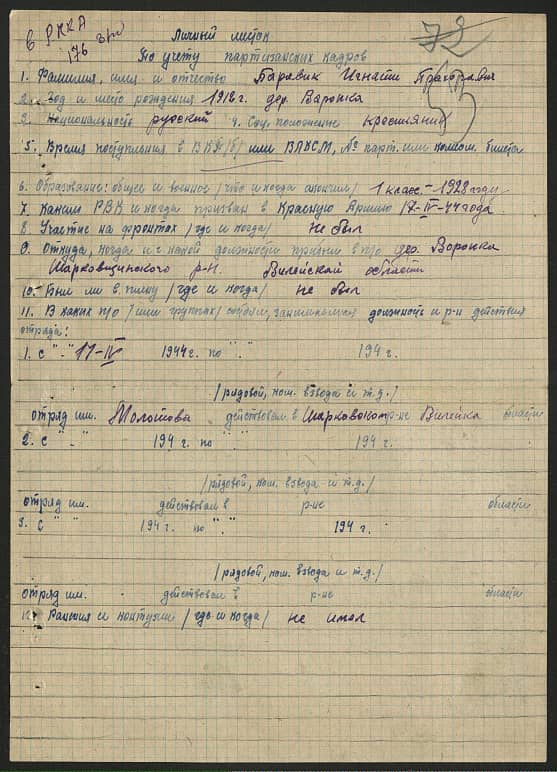 в РККА
72
176
Личный листок
По учету партизанских кадров
1. Фамилия, имя и отчество Паравик Игнати
2. Год и место рождения 1912 г. дер. Варонка
3. Национальность русский 4. Соц. положение крестьянин
5. Время поступления в ВКП/б/ или ВЛКСМ, № парт. или комсом. билета
6. Образование: общее и военное /что и когда окончил/ 1 класс.-1928 году
7. Каким РВК и когда призван в Красную Армию 17-IV-44 года
8. Участие на фронтах /где и когда/ не был
9. Откуда, когда и с какой должности прибыл в п/о дер. Воронка
Шарковщинского р-н. Вилейской области
10. Был ли в плену /где и когда/ не был
11. В каких п/о /или группах/ состоял, занимаемая должность и р-н действия
отряда:
1. с "." 17-IV 1944 г. по "." 194 г.
/рядовой, ком. взвода и т.д./
отряд им. Молотова действовал в р-не Вилейка области
2. с " " 194 г. по "." 194 г.
/рядовой, ком. взвода и т.д./
отряд им. действовал в р-не области
3. С " " 194 г. по "." 194 г.
/рядовой, ком. взвода и т.д./
отряд им. действовал в р-не области
12. Ранения и контузии /где и когда/ не имел